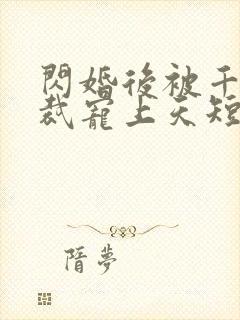 閃婚後被千
裁寵上天短
隋夢